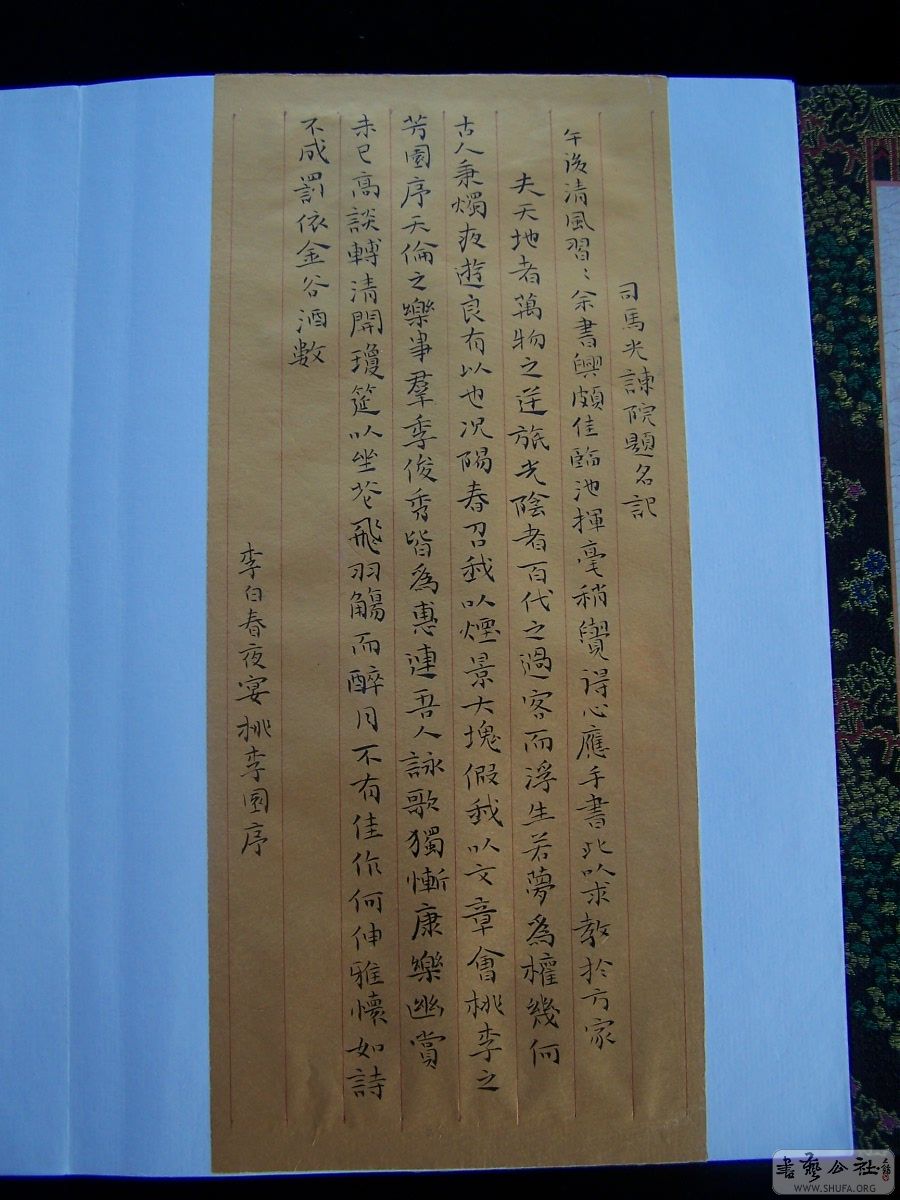 司馬光諫院題名記
午後清風習〻余書興頗佳臨池揮毫稍覺得心應手書此以求教於方家
夫天地者萬物之逆旅光陰者百代之過客而浮生若夢為權幾何
古人秉燭夜遊良有以也况陽春召我以煙景大塊假我以文章會桃李之
芳園序天倫之樂事羣季俊秀皆為惠連吾人詠歌獨慚康樂幽賞
未已高談轉清開瓊筵以坐花飛羽觴而醉月不有佳作何伸雅懷如詩
不成罰依金谷酒數
李白春夜宴桃李園序
書藝公社
WWW.SHUFA.ORG